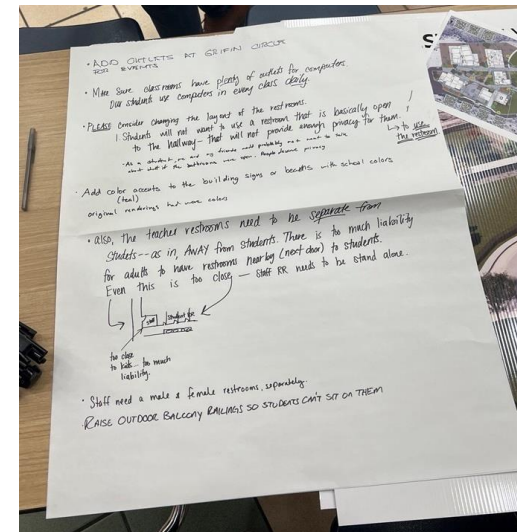 • ADD OUTLETS AT GRIFIN CIRCLE
FOR EVENTS
• Make Sure classrooms have plenty of outlets for computers.
Our students use computers in every class daily.
• PLEASE consider changing the layout of the restrooms.
1. Students will not want to use a restroom that is basically open
to the hallway - that will not provide enough privacy for them.
↳ to
the restroom
- As a student, me and my friends would probably not want to
that if the bathrooms were open. People deserve privacy
• Add color accents to the building signs or benches with school colors
(teal)
original renderings had more colors
• also, the teacher restrooms need to be separate from
Students -- as in, AWAY from students. There is too much liability
for adults to have restrooms nearby (next door) to students.
Even this is too close — Staff RR needs to be stand alone.
Staff
too close
to kids too much
liability.
• Staff need a male & female restrooms, separately.
RAISE OUTDOOR BALCONY RAILINGS SO STUDENTS CAN'T SIT ON THEM